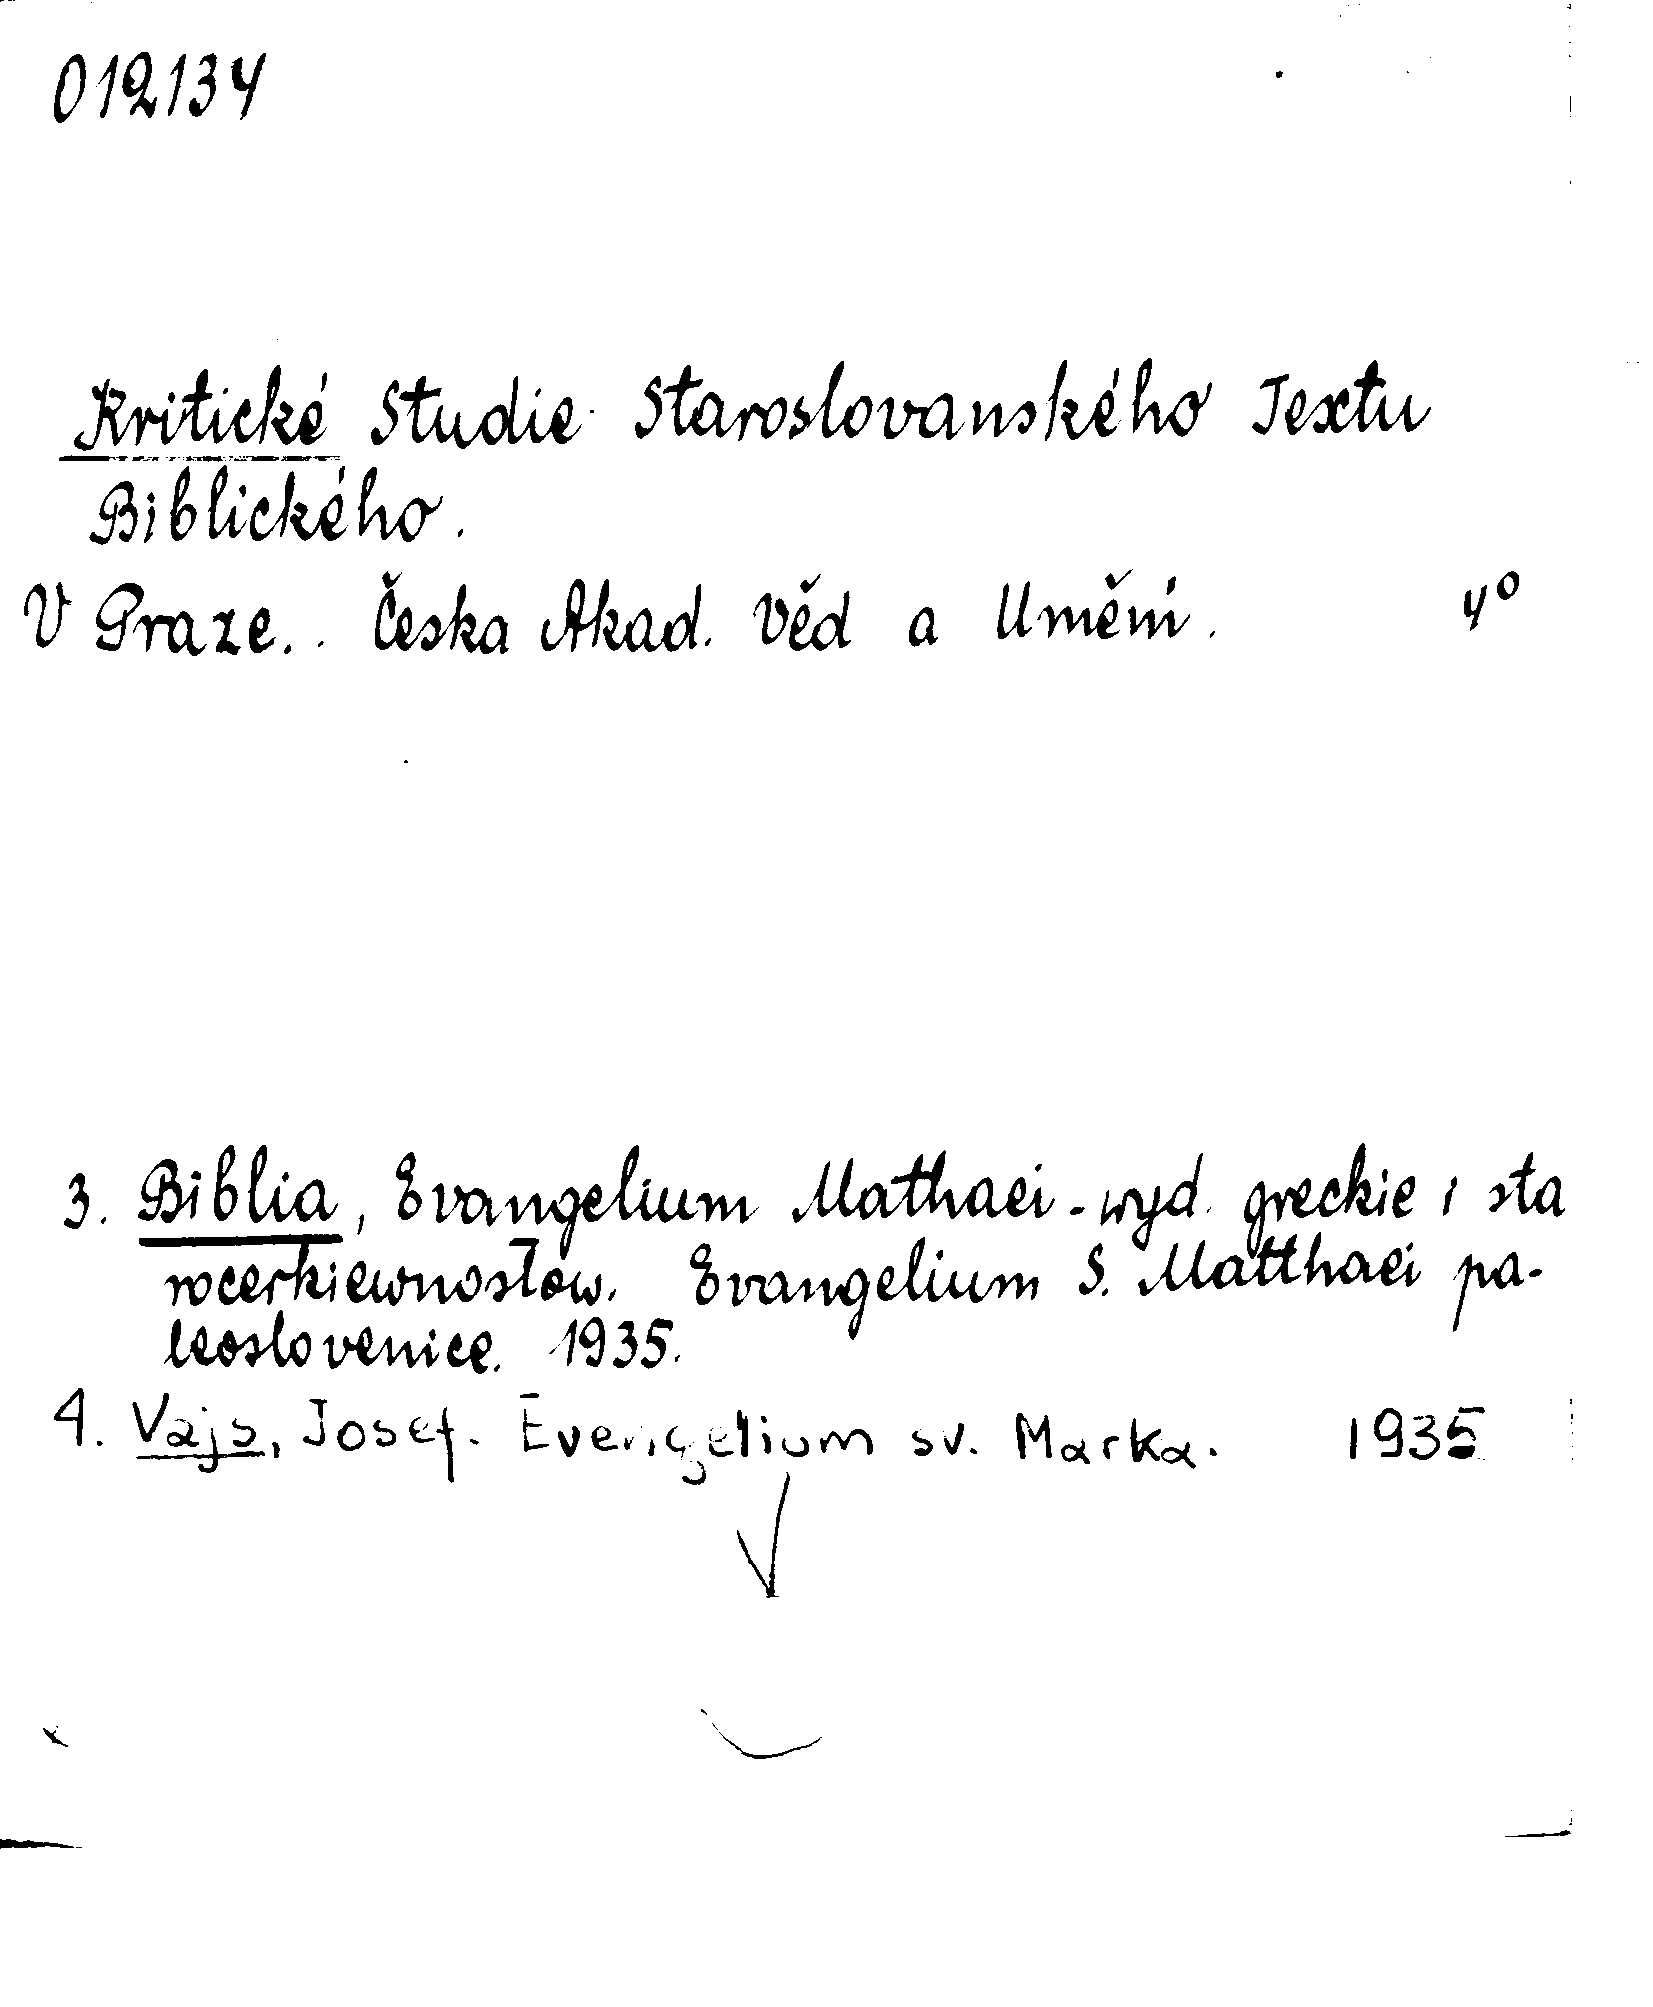 012134
Kritické Studie Staroslovanského Textu
Biblického.
V Praze. Česka Akad. Věd a Uměni. 4°
3. Biblia, Evangelium Mathaei - wyd. greckie i sta
rocerkiewnosłow. Evangelium S. Matthaei pa-
leoslovenice. 1935.
4. Vajs, Josef. Evengelium sv. Marka. 1935